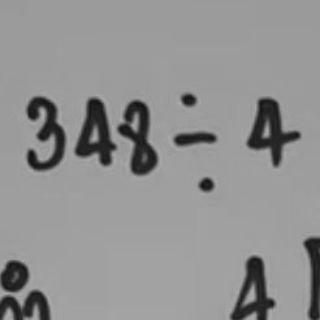 348 ÷ 4
4